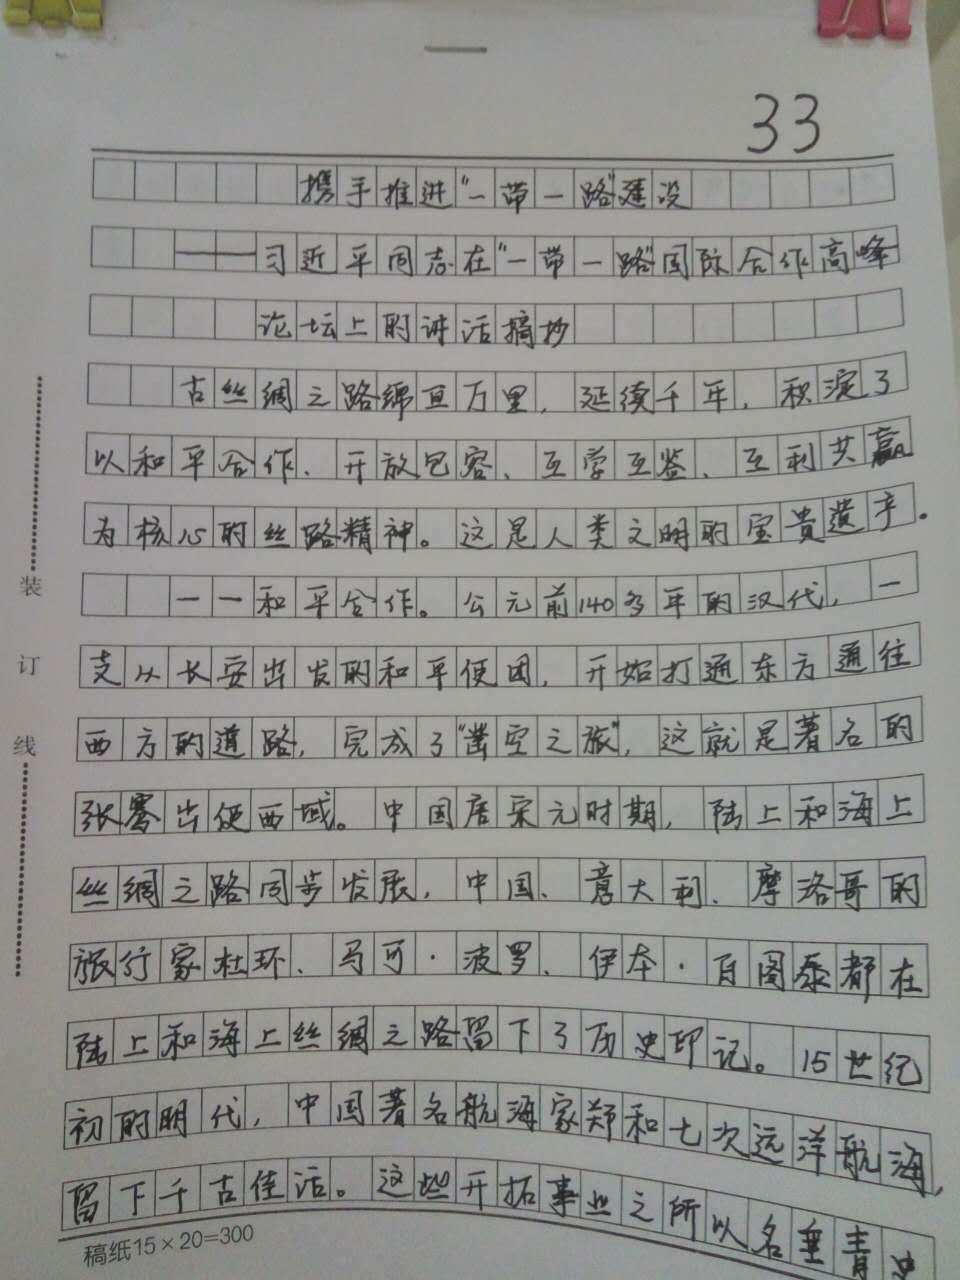 33
携手推进"一带一路"建设
——习近平同志在"一带一路"国际合作高峰
论坛上的讲话摘抄
古丝绸之路绵亘万里，延续千年，积淀了
以和平合作、开放包容、互学互鉴、互利共赢
为核心的丝路精神。这是人类文明的宝贵遗产。
——和平合作。公元前140多年的汉代，一
支从长安出发的和平使团，开始打通东方通往
西方的道路，完成了"凿空之旅"，这就是著名的
张骞出使西域。中国唐宋元时期，陆上和海上
丝绸之路同步发展，中国、意大利、摩洛哥的
旅行家杜环、马可·波罗、伊本·白图泰都在
陆上和海上丝绸之路留下了历史印记。15世纪
初的明代，中国著名航海家郑和七次远洋航海，
留下千古佳话。这些开拓事业之所以名垂青史
稿纸15×20=300
装
订
线